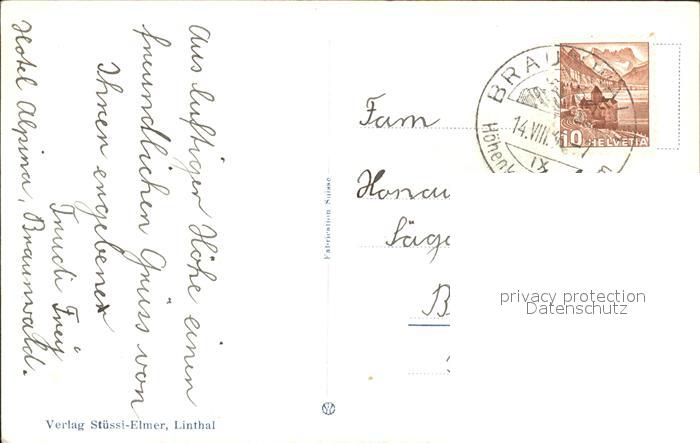 Aus luftiger Höhe einen
freundlichen Grüss von
Ihren ergebener
Trudi Frey
Hotel Alpina, Braunwald.
Verlag Stüssi-Elmer, Linthal
Fabrication Suisse
BRAU
14.VIII.
Höhenk
10 HELVETIA
Fam
Honau
Säge
B
privacy protection
Datenschutz